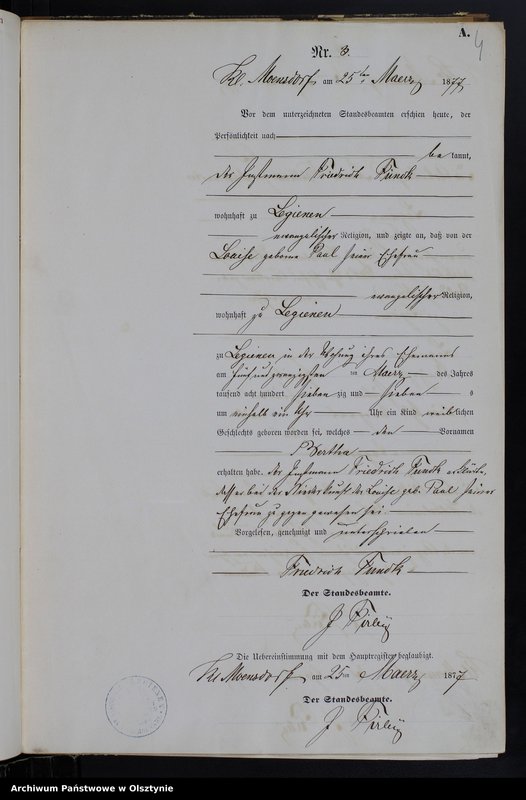 A.
4
Nr. 3.
Kl. Moensdorf am 25ten Maerz 1877
Vor dem unterzeichneten Standesbeamten erschien heute, der
Persönlichkeit nach
bekannt,
der Instmann Friedrich Funck
wohnhaft zu Legienen
evangelischer Religion, und zeigte an, daß von der
Louise geborne Paul seiner Ehefrau
evangelischer Religion,
wohnhaft zu Legienen
zu Legienen in der Wohnung ihres Ehemanns
am fünfundzwanzigsten ten Maerz des Jahres
tausend acht hundert sieben zig und sieben
um einhalb ein Uhr Uhr ein Kind weiblichen
Geschlechts geboren worden sei, welches den Vornamen
Bertha
erhalten habe. Der Instmann Friedrich Funck erklärte,
dass er bei der Niederkunft der Louise geb. Paul seiner
Ehefrau zugegen gewesen sei.
Vorgelesen, genehmigt und unterschrieben
Friedrich Funck
Der Standesbeamte.
J
Die Uebereinstimmung mit dem Hauptregister beglaubigt.
Kl. Moensdorf am 25ten Maerz 1877
Der Standesbeamte.
J
Archiwum Państwowe w Olsztynie